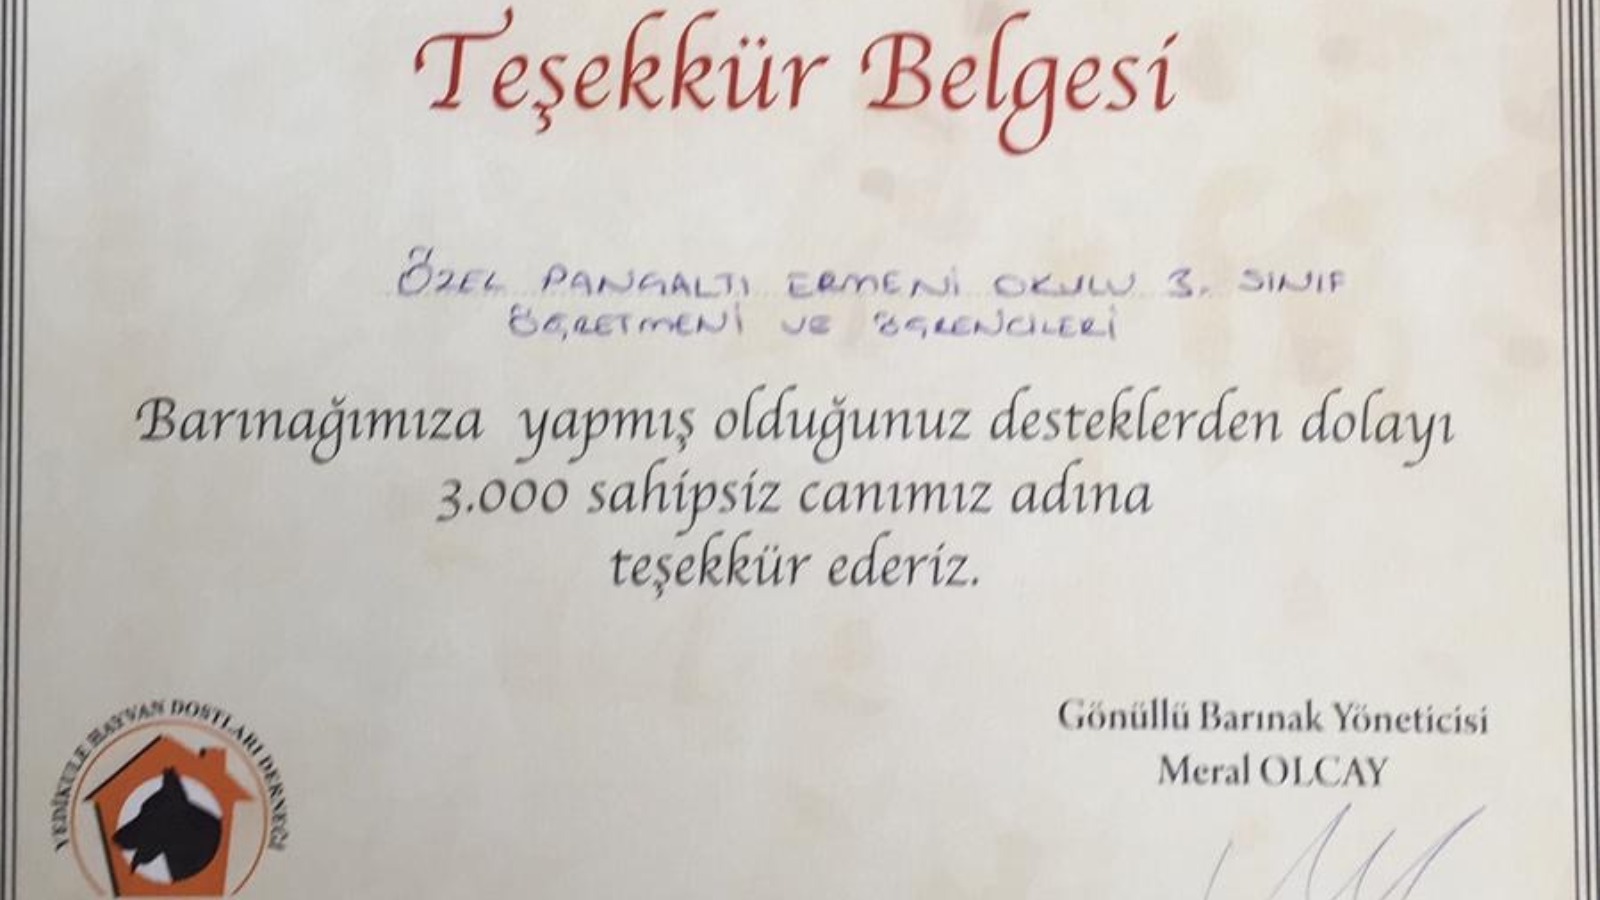 Teşekkür Belgesi
ÖZEL PANGALTI ERMENİ OKULU 3. SINIF
ÖĞRETMENİ VE ÖĞRENCİLERİ
Barınağımıza yapmış olduğunuz desteklerden dolayı
3.000 sahipsiz canımız adına
teşekkür ederiz.
Gönüllü Barınak Yöneticisi
Meral OLCAY
YEDİKULE HAYVAN DOSTLARI DERNEĞİ